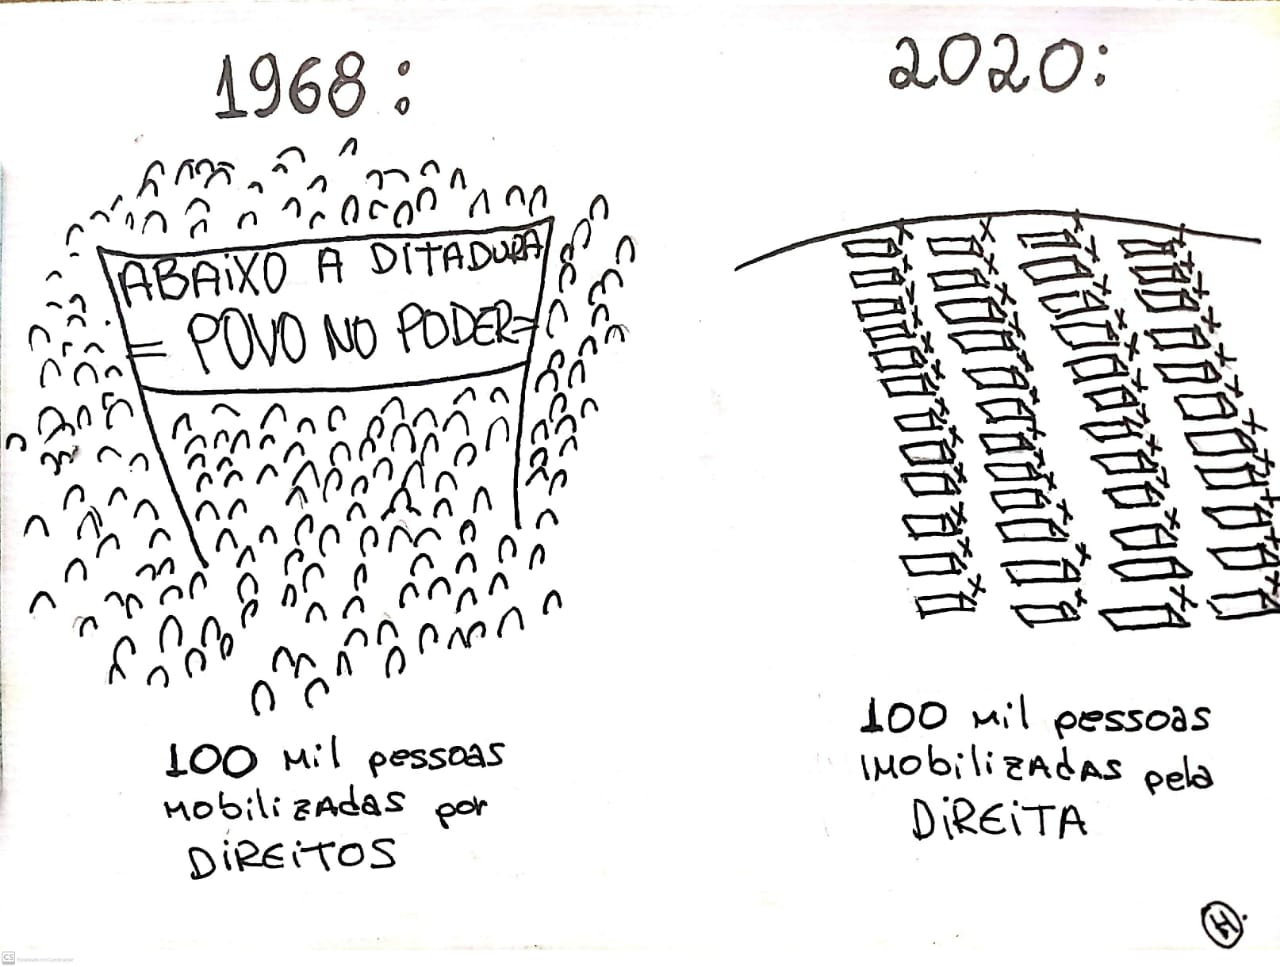 1968:
ABAIXO A DITADURA
= POVO NO PODER=
100 Mil pessoas
MobilizAdAS por
DiREiTOS
2020:
100 Mil pessoas
iMobilizAdAS pela
DiREiTA
H.
CS